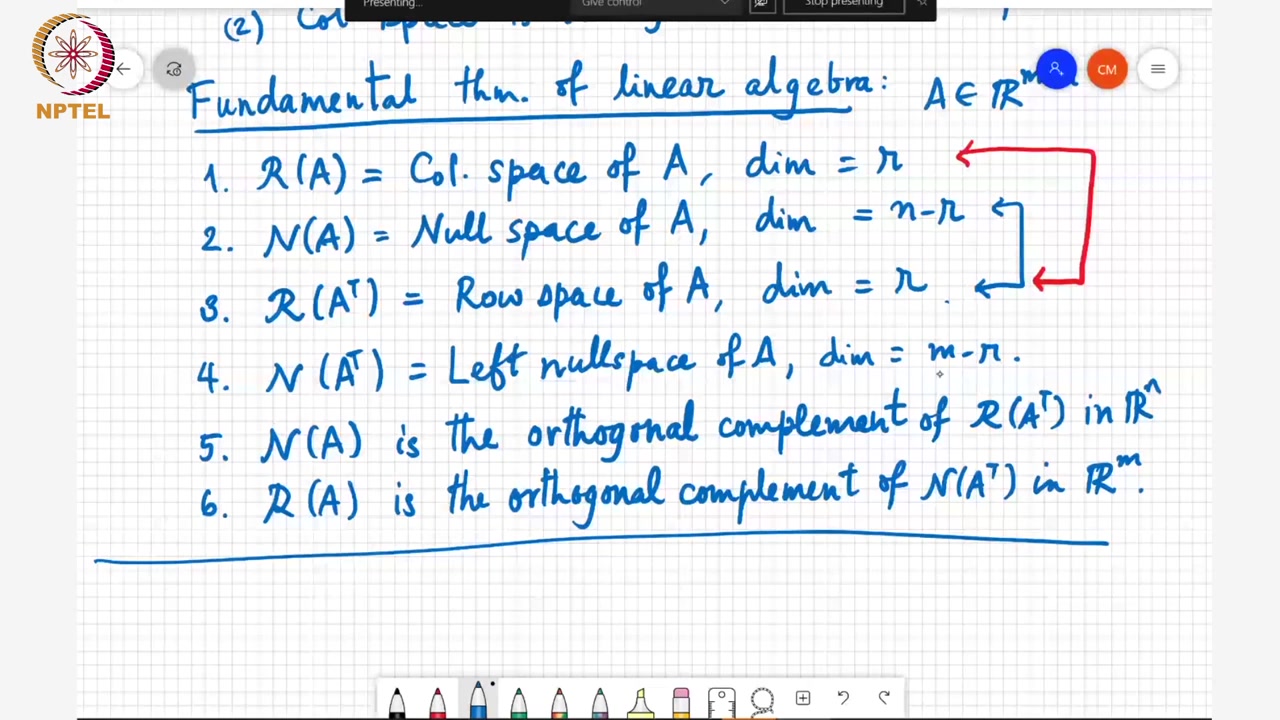 Presenting...
Give control
Stop presenting
(2) Col space is
NPTEL
CM
Fundamental thm. of linear algebra: A ∈ ℝᵐ
1. R(A) = Col. space of A, dim = r
2. N(A) = Null space of A, dim = n-r
3. R(Aᵀ) = Row space of A, dim = r.
4. N(Aᵀ) = Left nullspace of A, dim = m-r.
5. N(A) is the orthogonal complement of R(Aᵀ) in ℝⁿ
6. R(A) is the orthogonal complement of N(Aᵀ) in ℝᵐ.